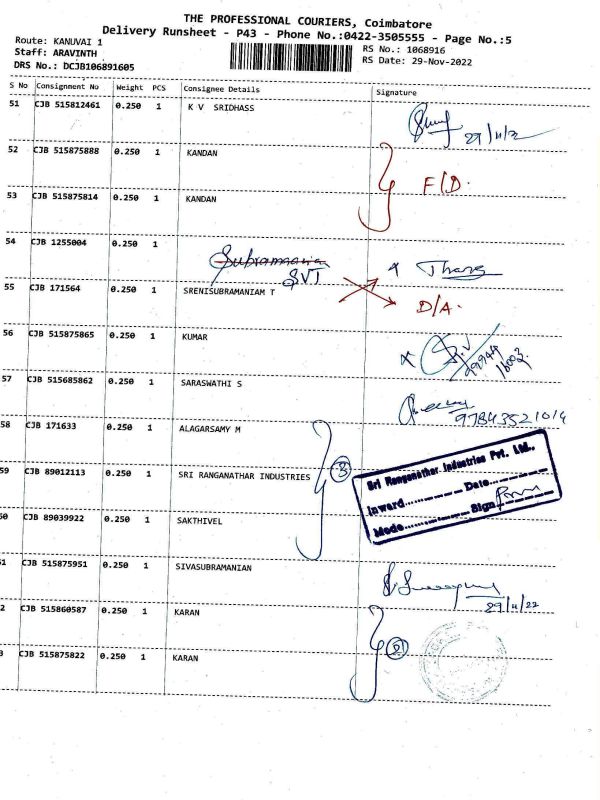 THE PROFESSIONAL COURIERS, Coimbatore
Delivery Runsheet - P43 - Phone No.:0422-3505555 - Page No.:5
Route: KANUVAI 1
Staff: ARAVINTH
DRS No.: DCJB106891605
RS No.: 1068916
RS Date: 29-Nov-2022
S No Consignment No Weight PCS Consignee Details Signature
51 CJB 515812461 0.250 1 K V SRIDHASS
29/11/2
52 CJB 515875888 0.250 1 KANDAN
F/D.
53 CJB 515875814 0.250 1 KANDAN
54 CJB 1255004 0.250 1
Subramania
SVT
55 CJB 171564 0.250 1 SRENISUBRAMANIAM T
D/A.
56 CJB 515875865 0.250 1 KUMAR
57 CJB 515685862 0.250 1 SARASWATHI S
58 CJB 171633 0.250 1 ALAGARSAMY M
59 CJB 89012113 0.250 1 SRI RANGANATHAR INDUSTRIES
Sri Ranganathar Industries Pvt. Ltd.,
Inward............ Date............
Mode............ Sign............
60 CJB 89039922 0.250 1 SAKTHIVEL
61 CJB 515875951 0.250 1 SIVASUBRAMANIAN
29/11/22
2 CJB 515860587 0.250 1 KARAN
3 CJB 515875822 0.250 1 KARAN